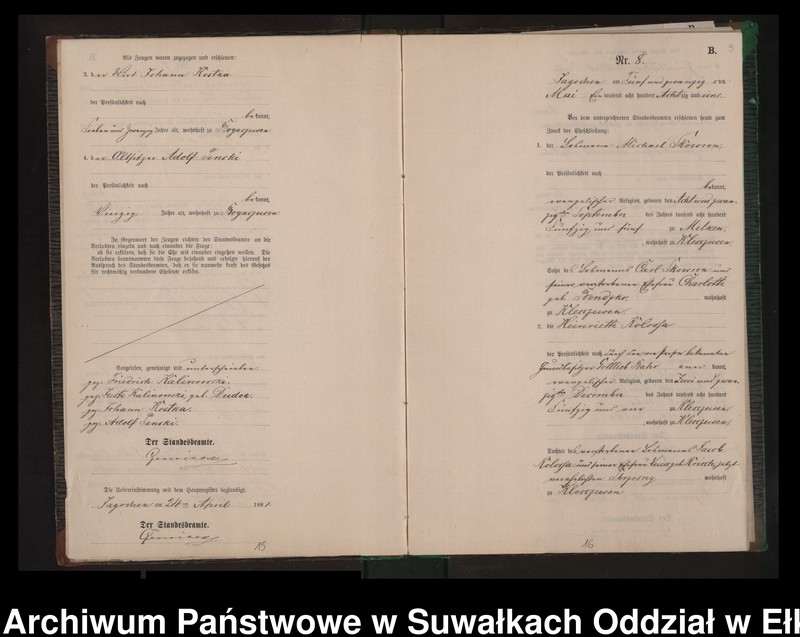 Als Zeugen waren zugezogen und erschienen:
3. der Wirt Johann Kostka
der Persönlichkeit nach
bekannt,
Sieben und Jahre alt, wohnhaft zu
4. der Altsitzer Adolf
der Persönlichkeit nach
bekannt,
Vierzig Jahre alt, wohnhaft zu
In Gegenwart der Zeugen richtete der Standesbeamte an die
Verlobten einzeln und nach einander die Frage:
ob sie erklären, daß sie die Ehe mit einander eingehen wollen. Die
Verlobten beantworteten diese Frage bejahend und erfolgte hierauf der
Ausspruch des Standesbeamten, daß er sie nunmehr kraft des Gesetzes
für rechtmäßig verbundene Eheleute erkläre.
Vorgelesen, genehmigt und unterschrieben
gez. Friedrich Kalinowski.
gez. Kalinowski geb. Duda.
gez. Johann Kostka.
gez. Adolf
Der Standesbeamte.
Die Uebereinstimmung mit dem Hauptregister beglaubigt.
Jagochen am 24ten April 1881.
Der Standesbeamte.
15
B.
Nr. 8.
Jagochen am Fünf und zwanzigsten
Mai Ein tausend acht hundert Achtzig und eins.
Vor dem unterzeichneten Standesbeamten erschienen heute zum
Zweck der Eheschließung:
1. der Losmann Michael
der Persönlichkeit nach
bekannt,
evangelischer Religion, geboren den Acht und zwan-
zigsten September des Jahres tausend acht hundert
Fünfzig und fünf zu
wohnhaft zu
Sohn des Losmanns Carl und
seiner verstorbenen Ehefrau Charlotte
geb. wohnhaft
zu
2. die Heinriette Kolossa
der Persönlichkeit nach durch den von Person bekannten
Grundbesitzer Gottlieb anerkannt,
evangelischer Religion, geboren den Zwei und zwan-
zigsten December des Jahres tausend acht hundert
Fünfzig und zu
wohnhaft zu
Tochter des verstorbenen Losmanns Jacob
Kolossa und seiner Ehefrau jetzt
verehelichten wohnhaft
zu
16
Archiwum Państwowe w Suwałkach Oddział w Ełk